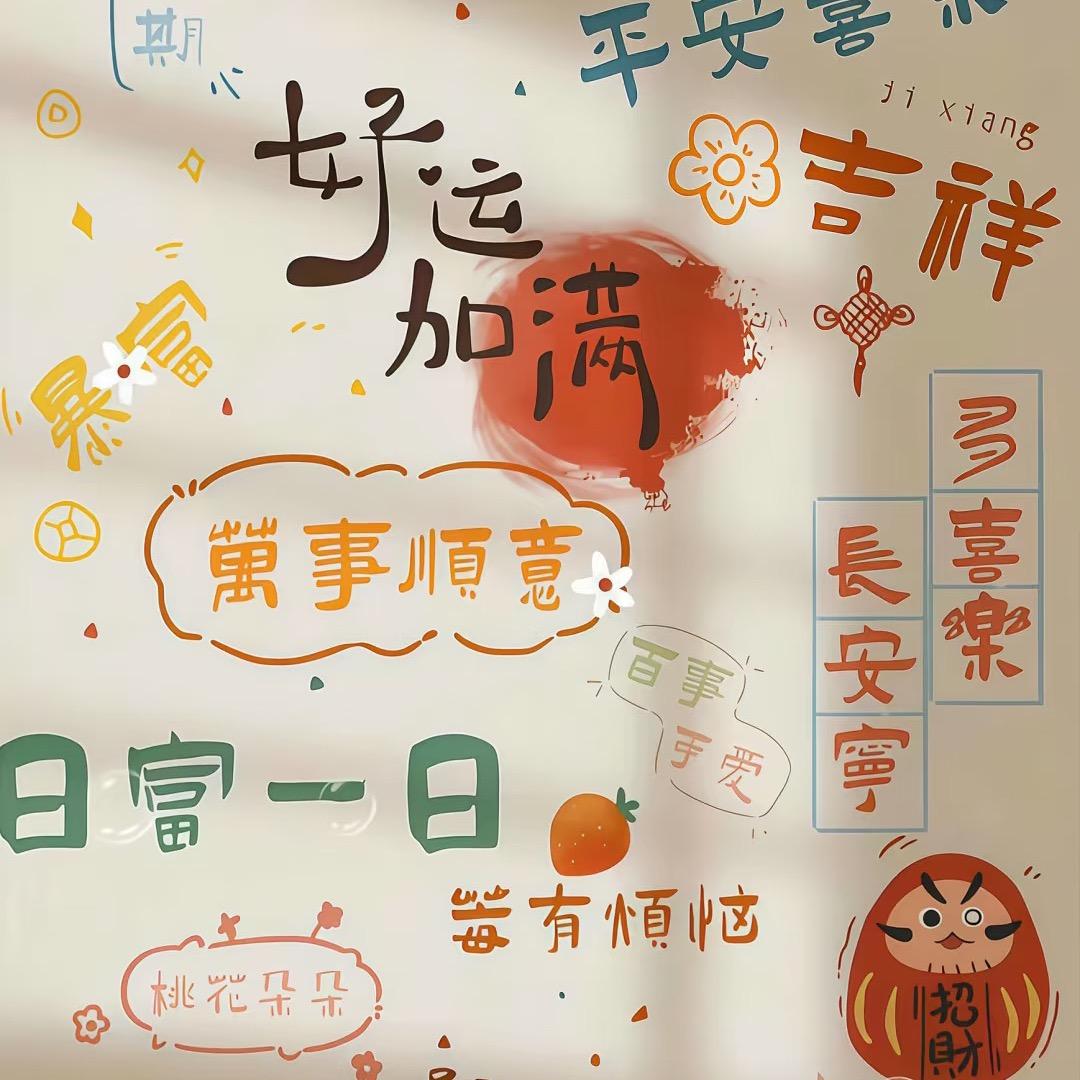 期
平安喜
ji xiang
吉祥
好运
加满
暴富
萬事順意
多喜樂
長安寧
百事
可爱
日富一日
莓有煩惱
桃花朵朵
招財